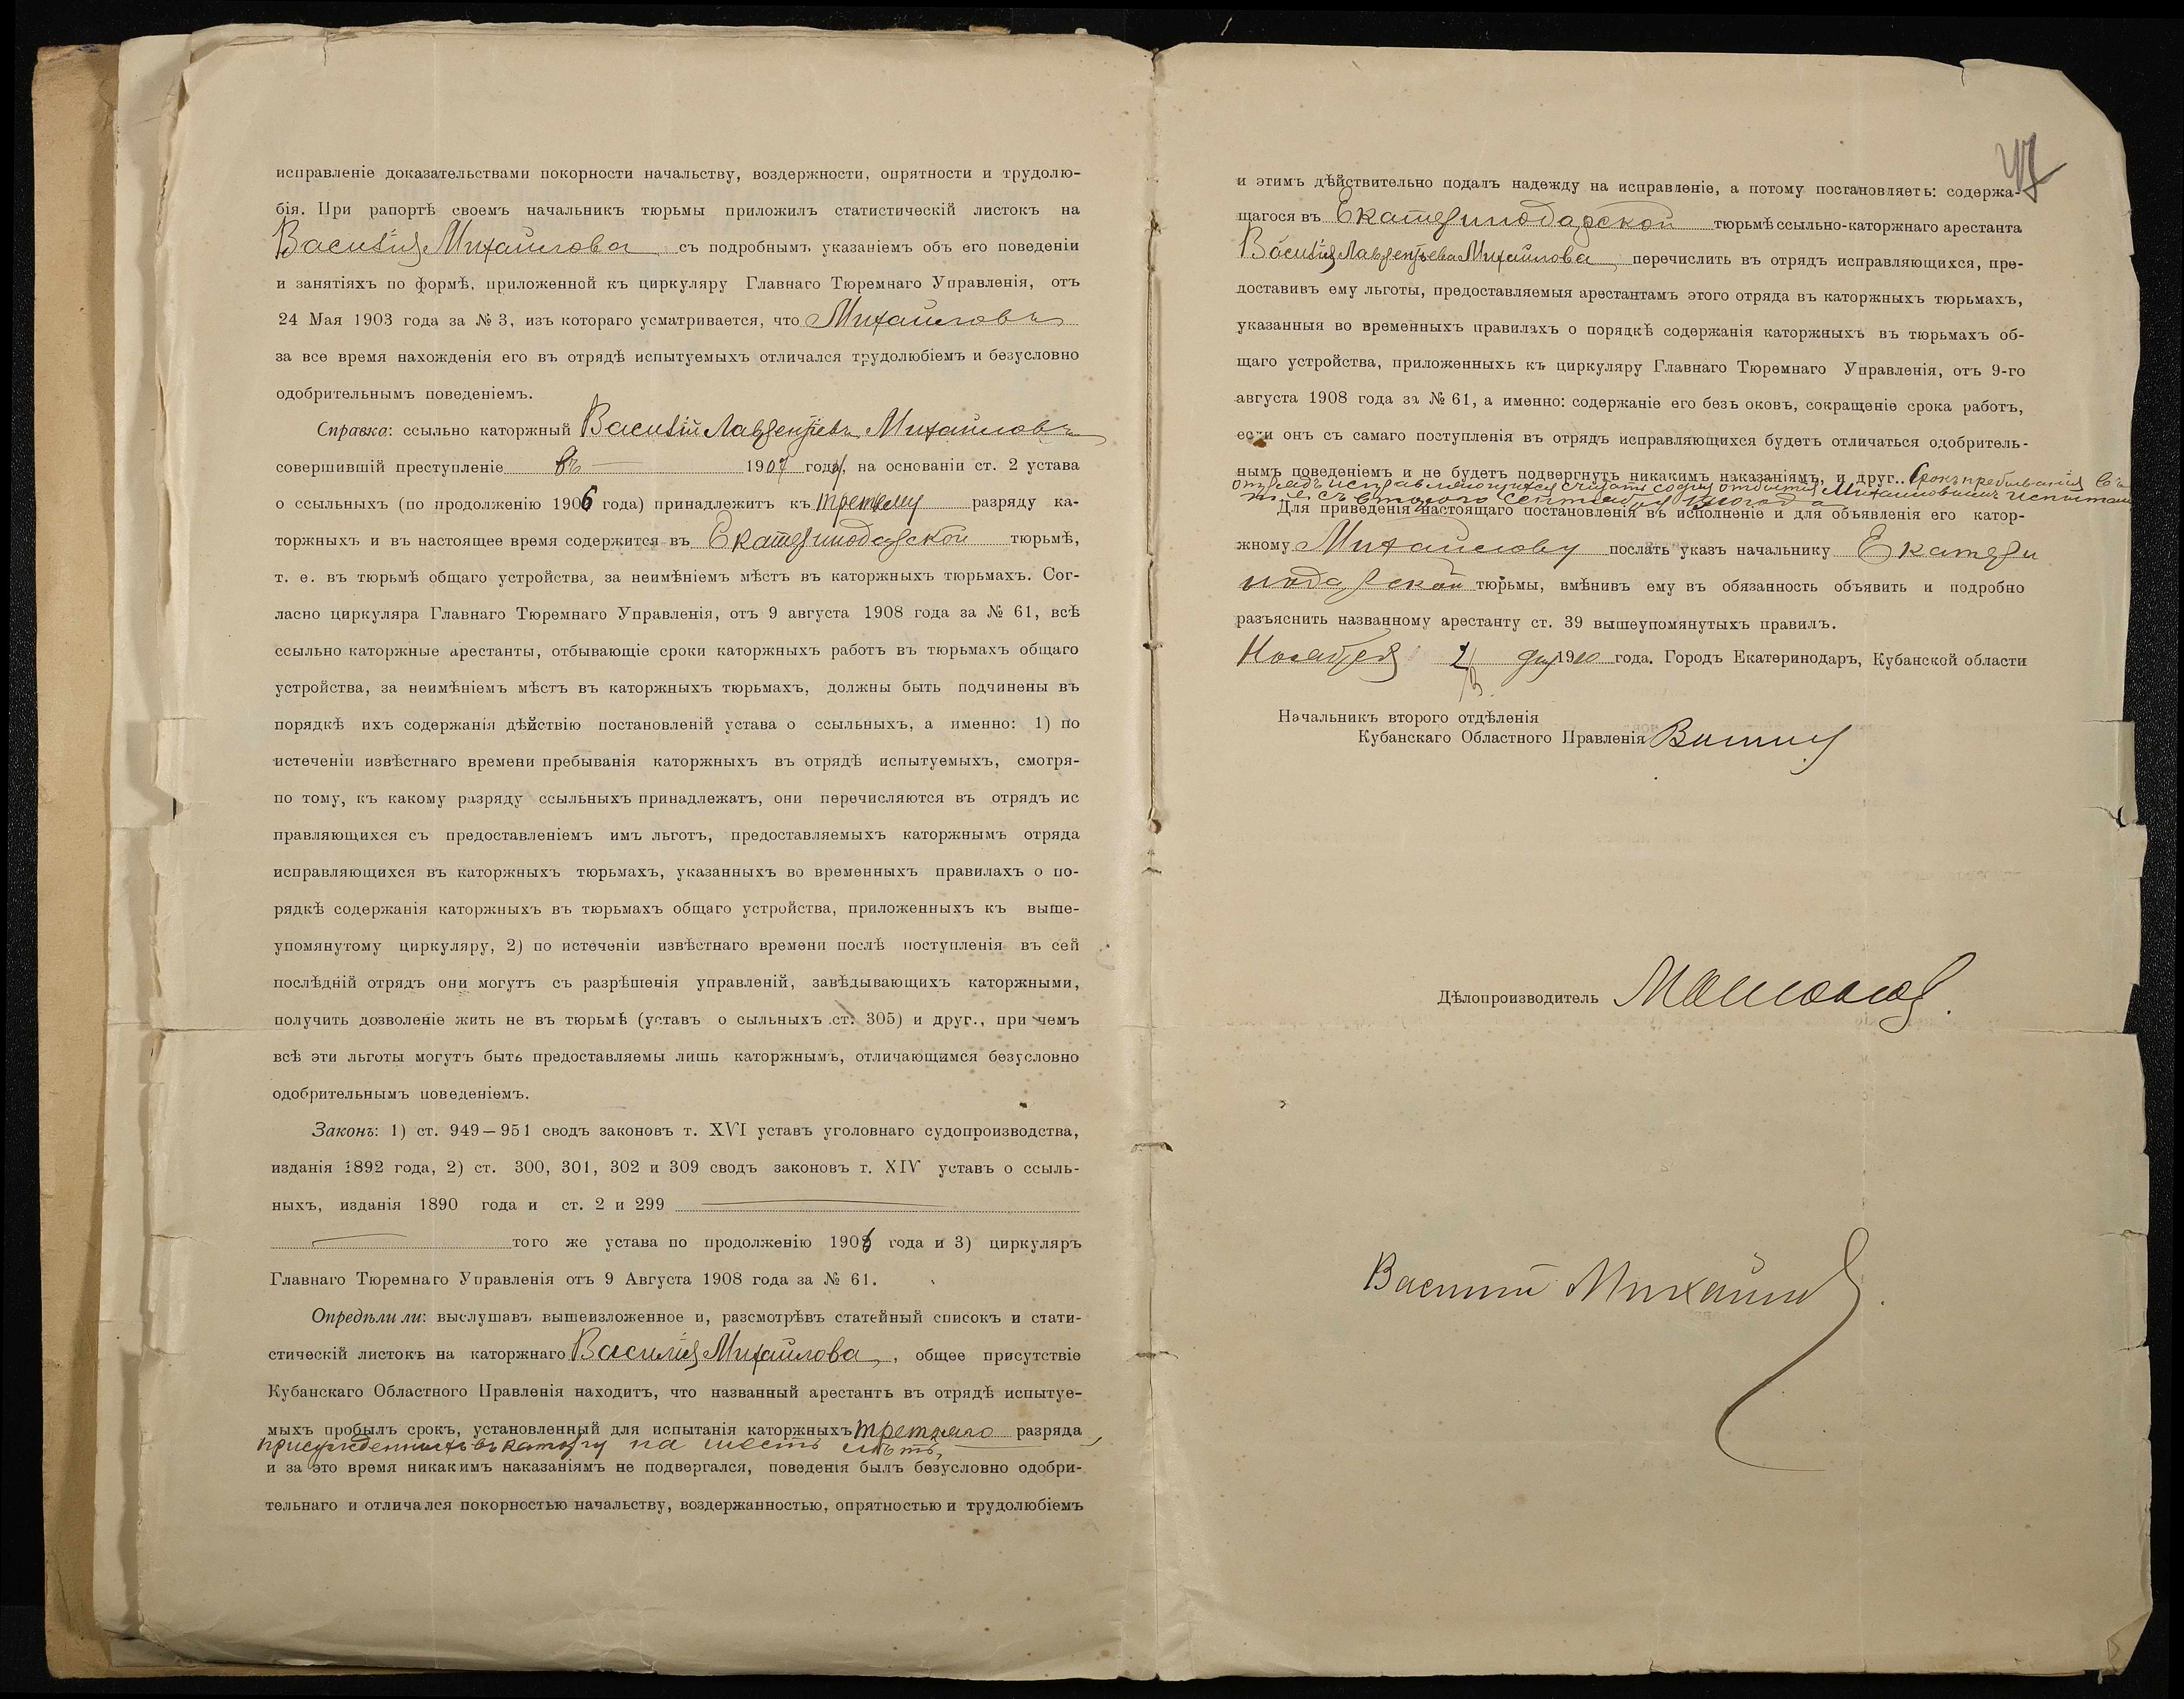 исправленіе доказательствами покорности начальству, воздержности, опрятности и трудолю-
бія. При рапортѣ своемъ начальникъ тюрьмы приложилъ статистическій листокъ на
Василія Михайлова съ подробнымъ указаніемъ объ его поведеніи
и занятіяхъ по формѣ, приложенной къ циркуляру Главнаго Тюремнаго Управленія, отъ
24 Мая 1903 года за № 3, изъ котораго усматривается, что Михайловъ
за все время нахожденія его въ отрядѣ испытуемыхъ отличался трудолюбіемъ и безусловно
одобрительнымъ поведеніемъ.
Справка: ссыльно каторжный Василій Лаврентьевъ Михайловъ
совершившій преступленіе въ 1907 году, на основаніи ст. 2 устава
о ссыльныхъ (по продолженію 1906 года) принадлежитъ къ третьему разряду ка-
торжныхъ и въ настоящее время содержится въ Екатеринодарской тюрьмѣ,
т. е. въ тюрьмѣ общаго устройства, за неимѣніемъ мѣстъ въ каторжныхъ тюрьмахъ. Сог-
ласно циркуляра Главнаго Тюремнаго Управленія, отъ 9 августа 1908 года за № 61, всѣ
ссыльно каторжные арестанты, отбывающіе сроки каторжныхъ работъ въ тюрьмахъ общаго
устройства, за неимѣніемъ мѣстъ въ каторжныхъ тюрьмахъ, должны быть подчинены въ
порядкѣ ихъ содержанія дѣйствію постановленій устава о ссыльныхъ, а именно: 1) по
истеченіи извѣстнаго времени пребыванія каторжныхъ въ отрядѣ испытуемыхъ, смотря-
по тому, къ какому разряду ссыльныхъ принадлежатъ, они перечисляются въ отрядъ ис
правляющихся съ предоставленіемъ имъ льготъ, предоставляемыхъ каторжнымъ отряда
исправляющихся въ каторжныхъ тюрьмахъ, указанныхъ во временныхъ правилахъ о по-
рядкѣ содержанія каторжныхъ въ тюрьмахъ общаго устройства, приложенныхъ къ выше-
упомянутому циркуляру, 2) по истеченіи извѣстнаго времени послѣ поступленія въ сей
послѣдній отрядъ они могутъ съ разрѣшенія управленій, завѣдывающихъ каторжными,
получить дозволеніе жить не въ тюрьмѣ (уставъ о сыльныхъ ст. 305) и друг., при чемъ
всѣ эти льготы могутъ быть предоставляемы лишь каторжнымъ, отличающимся безусловно
одобрительнымъ поведеніемъ.
Законъ: 1) ст. 949—951 сводъ законовъ т. XVI уставъ уголовнаго судопроизводства,
изданія 1892 года, 2) ст. 300, 301, 302 и 309 сводъ законовъ т. XIV уставъ о ссыль-
ныхъ, изданія 1890 года и ст. 2 и 299
того же устава по продолженію 1906 года и 3) циркуляръ
Главнаго Тюремнаго Управленія отъ 9 Августа 1908 года за № 61.
Опредѣлили: выслушавъ вышеизложенное и, разсмотрѣвъ статейный списокъ и стати-
стическій листокъ на каторжнаго Василія Михайлова, общее присутствіе
Кубанскаго Областного Правленія находитъ, что названный арестантъ въ отрядѣ испытуе-
мыхъ пробылъ срокъ, установленный для испытанія каторжныхъ третьяго разряда
присужденныхъ въ каторгу на шесть лѣтъ,
и за это время никакимъ наказаніямъ не подвергался, поведенія былъ безусловно одобри-
тельнаго и отличался покорностью начальству, воздержанностью, опрятностью и трудолюбіемъ
47
и этимъ дѣйствительно подалъ надежду на исправленіе, а потому постановляетъ: содержа-
щагося въ Екатеринодарской тюрьмѣ ссыльно-каторжнаго арестанта
Василія Лаврентьева Михайлова перечислить въ отрядъ исправляющихся, пре-
доставивъ ему льготы, предоставляемыя арестантамъ этого отряда въ каторжныхъ тюрьмахъ,
указанныя во временныхъ правилахъ о порядкѣ содержанія каторжныхъ въ тюрьмахъ об-
щаго устройства, приложенныхъ къ циркуляру Главнаго Тюремнаго Управленія, отъ 9-го
августа 1908 года за № 61, а именно: содержаніе его безъ оковъ, сокращеніе срока работъ,
если онъ съ самаго поступленія въ отрядъ исправляющихся будетъ отличаться одобритель-
нымъ поведеніемъ и не будетъ подвергнутъ никакимъ наказаніямъ, и друг. Срокъ пребыванія въ
отрядѣ исправляющихся считать со дня отбытія Михайловымъ испытан
т. е. съ второго сентября
Для приведенія настоящаго постановленія въ исполненіе и для объявленія его катор-
жному Михайлову послать указъ начальнику Екатери
нодарской тюрьмы, вмѣнивъ ему въ обязанность объявить и подробно
разъяснить названному арестанту ст. 39 вышеупомянутыхъ правилъ.
Ноября дня 1910 года. Городъ Екатеринодаръ, Кубанской области
Начальникъ второго отдѣленія
Кубанскаго Областного Правленія
Дѣлопроизводитель
Василій Михайлов